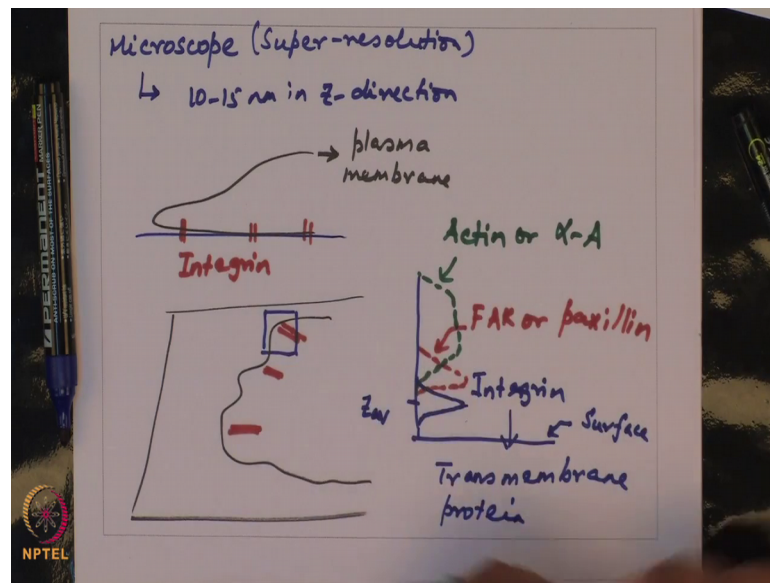 Microscope (Super-resolution)
↳ 10-15 nm in Z-direction
→ plasma
membrane
Integrin
Actin or α-A
FAK or paxillin
Integrin
Zav
Surface
Transmembrane
protein
PERMANENT
MARKER PEN
NPTEL